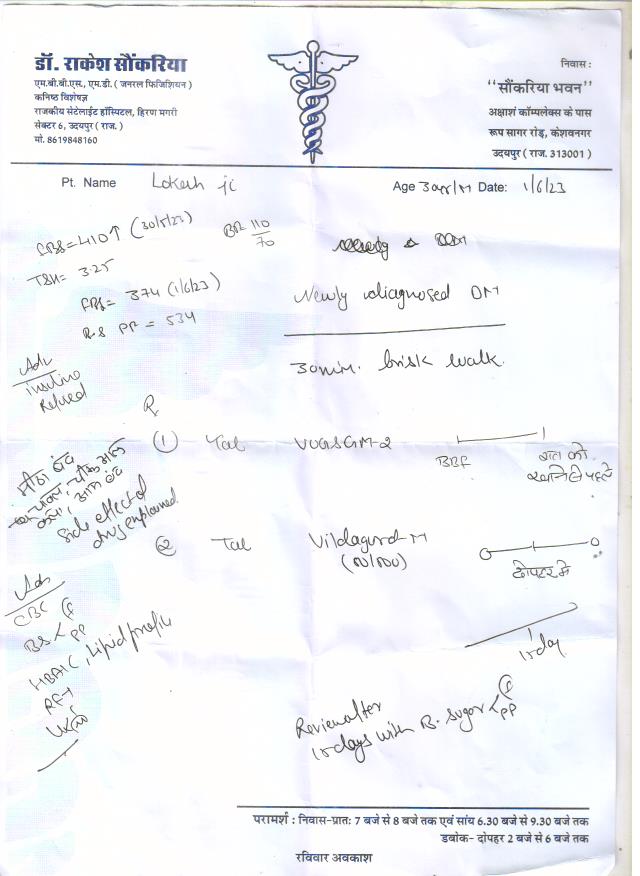 डॉ. राकेश सौंकरिया
एम.बी.बी.एस., एम.डी. ( जनरल फिजिशियन )
कनिष्ठ विशेषज्ञ
राजकीय सेटेलाईट हॉस्पिटल, हिरण मगरी
सेक्टर 6, उदयपुर ( राज. )
मो. 8619848160
निवास :
"सौंकरिया भवन"
अक्षांश कॉम्पलेक्स के पास
रूप सागर रोड़, केशवनगर
उदयपुर ( राज. 313001 )
Pt. Name Lokesh ji Age 30yr/M Date: 1/6/23
RBS = 410↑ (30/5/23) BP 110/70
TSH = 3.25
FBS = 374 (1/6/23) Newly diagnosed DM
B.S PP = 534
30min. brisk walk.
Adv
insuline
Refused
R
① Tab VOGS GM-2 BBF रात को
खाने से पहले
मीठा बंद
Side effect of
drug explained
② Tab Vildagard-M
(50/500) दोपहर में
Adv
CBC
BS < F PP
HBA1C, Lipid profile
RFT
15 day
Review after
15 days with B. sugar < F PP
परामर्श : निवास-प्रातः 7 बजे से 8 बजे तक एवं सांय 6.30 बजे से 9.30 बजे तक
डबोक- दोपहर 2 बजे से 6 बजे तक
रविवार अवकाश